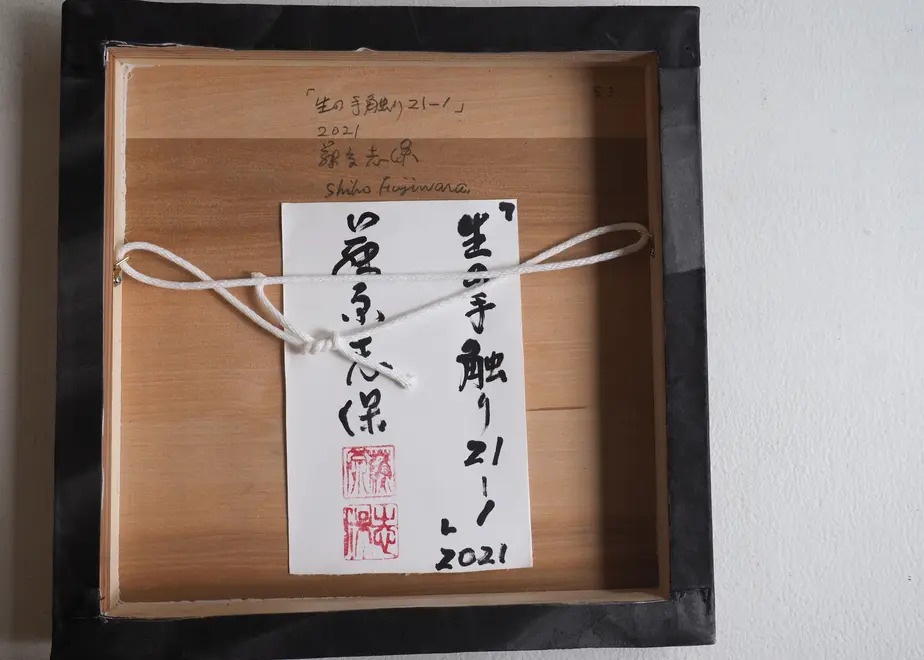 「生の手触り21-1」
2021
藤原志保
Shiho Fujiwara.
「生の手触り21-1」
2021
藤原志保
藤原
志保